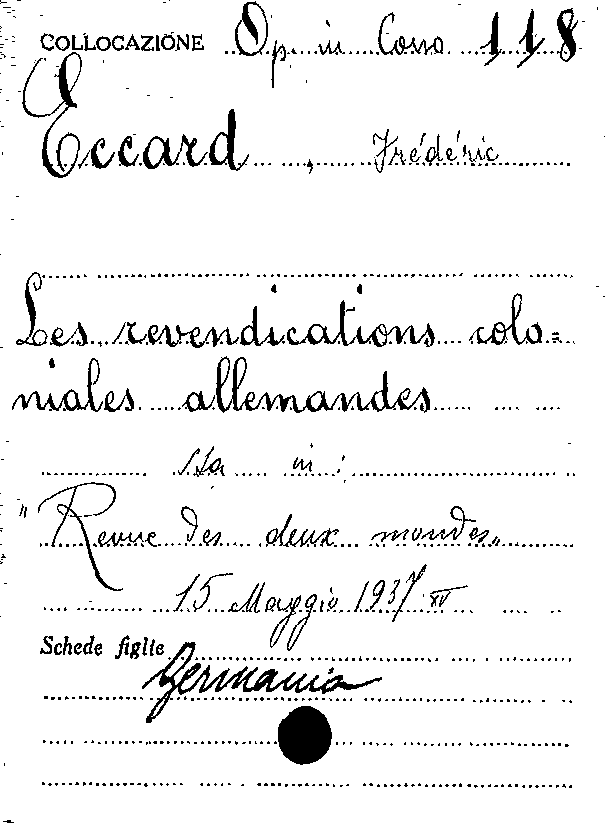 COLLOCAZIONE Op. in Cons 118
Eccard, Frédéric
Les revendications colo=
niales allemandes
sta in:
"Revue des deux mondes"
15 Maggio 1937 XV
Schede figlie
Germania